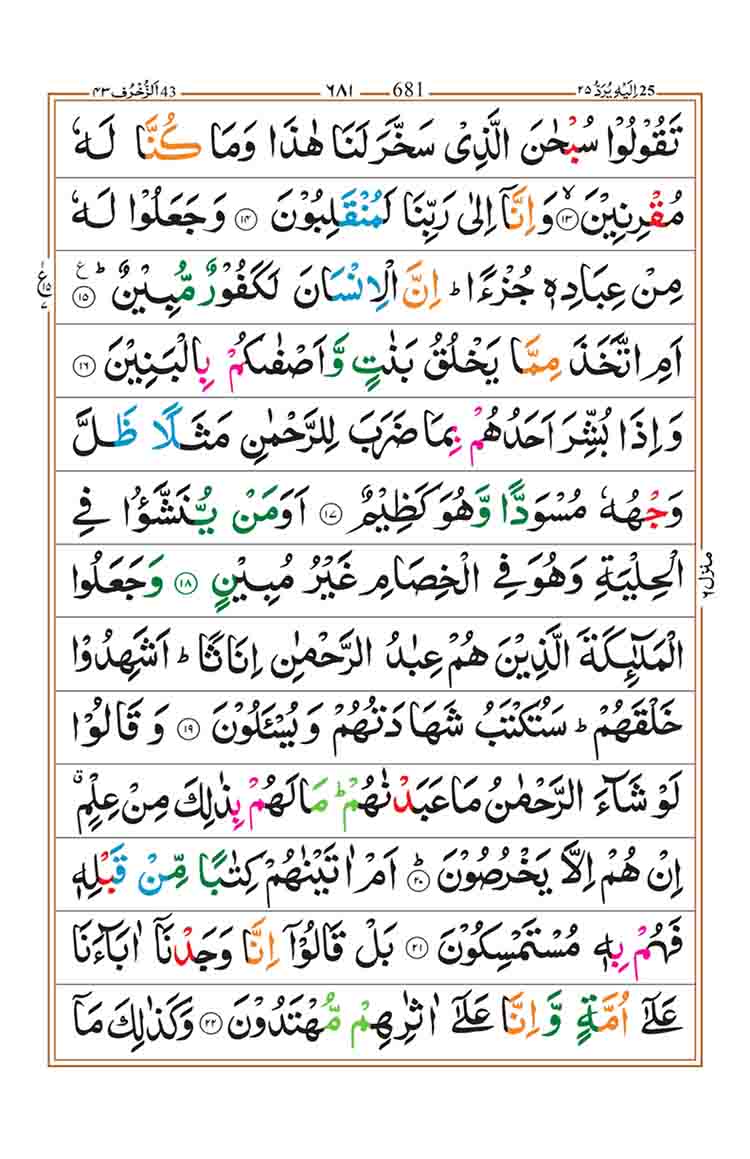 اَلزُّخْرُف ٤٣ 43 ٦٨١ 681 اِلَيْهِ يُرَدُّ ٢٥ 25
تَقُوْلُوْا سُبْحٰنَ الَّذِیْ سَخَّرَ لَنَا هٰذَا وَمَا كُنَّا لَهٗ
مُقْرِنِیْنَ ۙ﴿١٣﴾ وَاِنَّاۤ اِلٰى رَبِّنَا لَمُنْقَلِبُوْنَ ﴿١٤﴾ وَجَعَلُوْا لَهٗ
مِنْ عِبَادِهٖ جُزْءًا ؕ اِنَّ الْاِنْسَانَ لَكَفُوْرٌ مُّبِیْنٌ ؕ ﴿١٥﴾ ع
اَمِ اتَّخَذَ مِمَّا یَخْلُقُ بَنٰتٍ وَّاَصْفٰىكُمْ بِالْبَنِیْنَ ﴿١٦﴾
وَاِذَا بُشِّرَ اَحَدُهُمْ بِمَا ضَرَبَ لِلرَّحْمٰنِ مَثَلًا ظَلَّ
وَجْهُهٗ مُسْوَدًّا وَّهُوَ كَظِیْمٌ ﴿١٧﴾ اَوَمَنْ یُّنَشَّؤُا فِی
الْحِلْیَةِ وَهُوَ فِی الْخِصَامِ غَیْرُ مُبِیْنٍ ﴿١٨﴾ وَجَعَلُوا
الْمَلٰٓئِكَةَ الَّذِیْنَ هُمْ عِبٰدُ الرَّحْمٰنِ اِنَاثًا ؕ اَشَهِدُوْا
خَلْقَهُمْ ؕ سَتُكْتَبُ شَهَادَتُهُمْ وَیُسْـَٔلُوْنَ ﴿١٩﴾ وَقَالُوْا
لَوْ شَآءَ الرَّحْمٰنُ مَا عَبَدْنٰهُمْ ؕ مَا لَهُمْ بِذٰلِكَ مِنْ عِلْمٍ ۗ
اِنْ هُمْ اِلَّا یَخْرُصُوْنَ ؕ ﴿٢٠﴾ اَمْ اٰتَیْنٰهُمْ كِتٰبًا مِّنْ قَبْلِهٖ
فَهُمْ بِهٖ مُسْتَمْسِكُوْنَ ﴿٢١﴾ بَلْ قَالُوْۤا اِنَّا وَجَدْنَاۤ اٰبَآءَنَا
عَلٰۤى اُمَّةٍ وَّاِنَّا عَلٰۤى اٰثٰرِهِمْ مُّهْتَدُوْنَ ﴿٢٢﴾ وَكَذٰلِكَ مَاۤ
منزل ٦